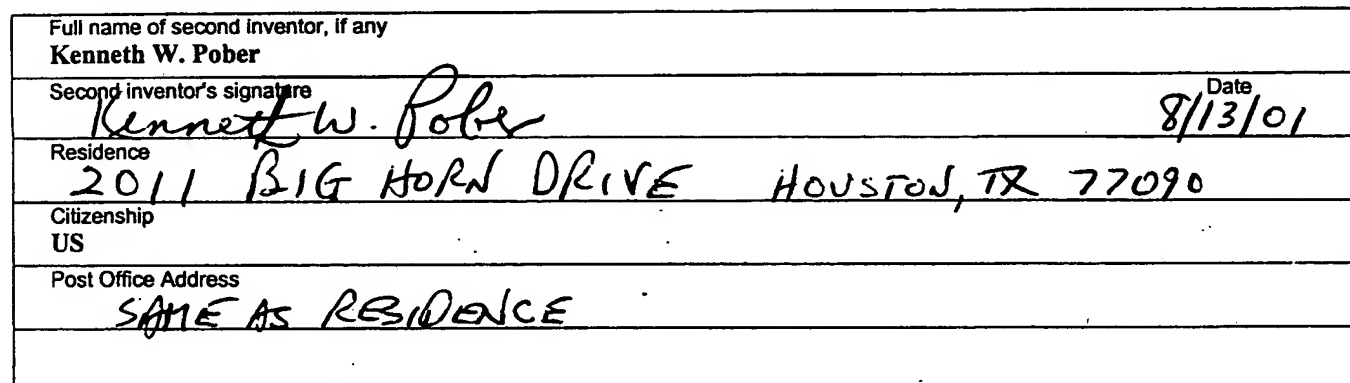 Full name of second inventor, if any
Kenneth W. Pober
Second inventor's signature Date
Kenneth W. Pober 8/13/01
Residence
2011 BIG HORN DRIVE HOUSTON, TX 77090
Citizenship
US
Post Office Address
SAME AS RESIDENCE